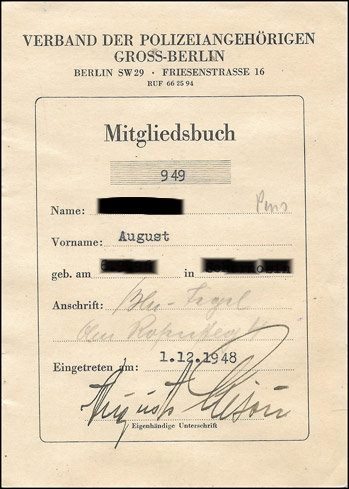 VERBAND DER POLIZEIANGEHÖRIGEN
GROSS-BERLIN
BERLIN SW 29 · FRIESENSTRASSE 16
RUF 66 25 94
Mitgliedsbuch
949
Name:
Vorname: August
geb. am in
Anschrift: Bln-Tegel
Eingetreten am: 1.12.1948
August
Eigenhändige Unterschrift